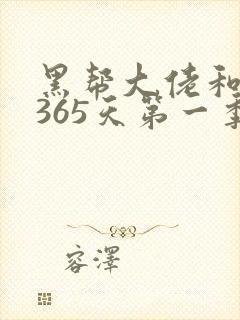 黑帮大佬和
365天第一季
容泽